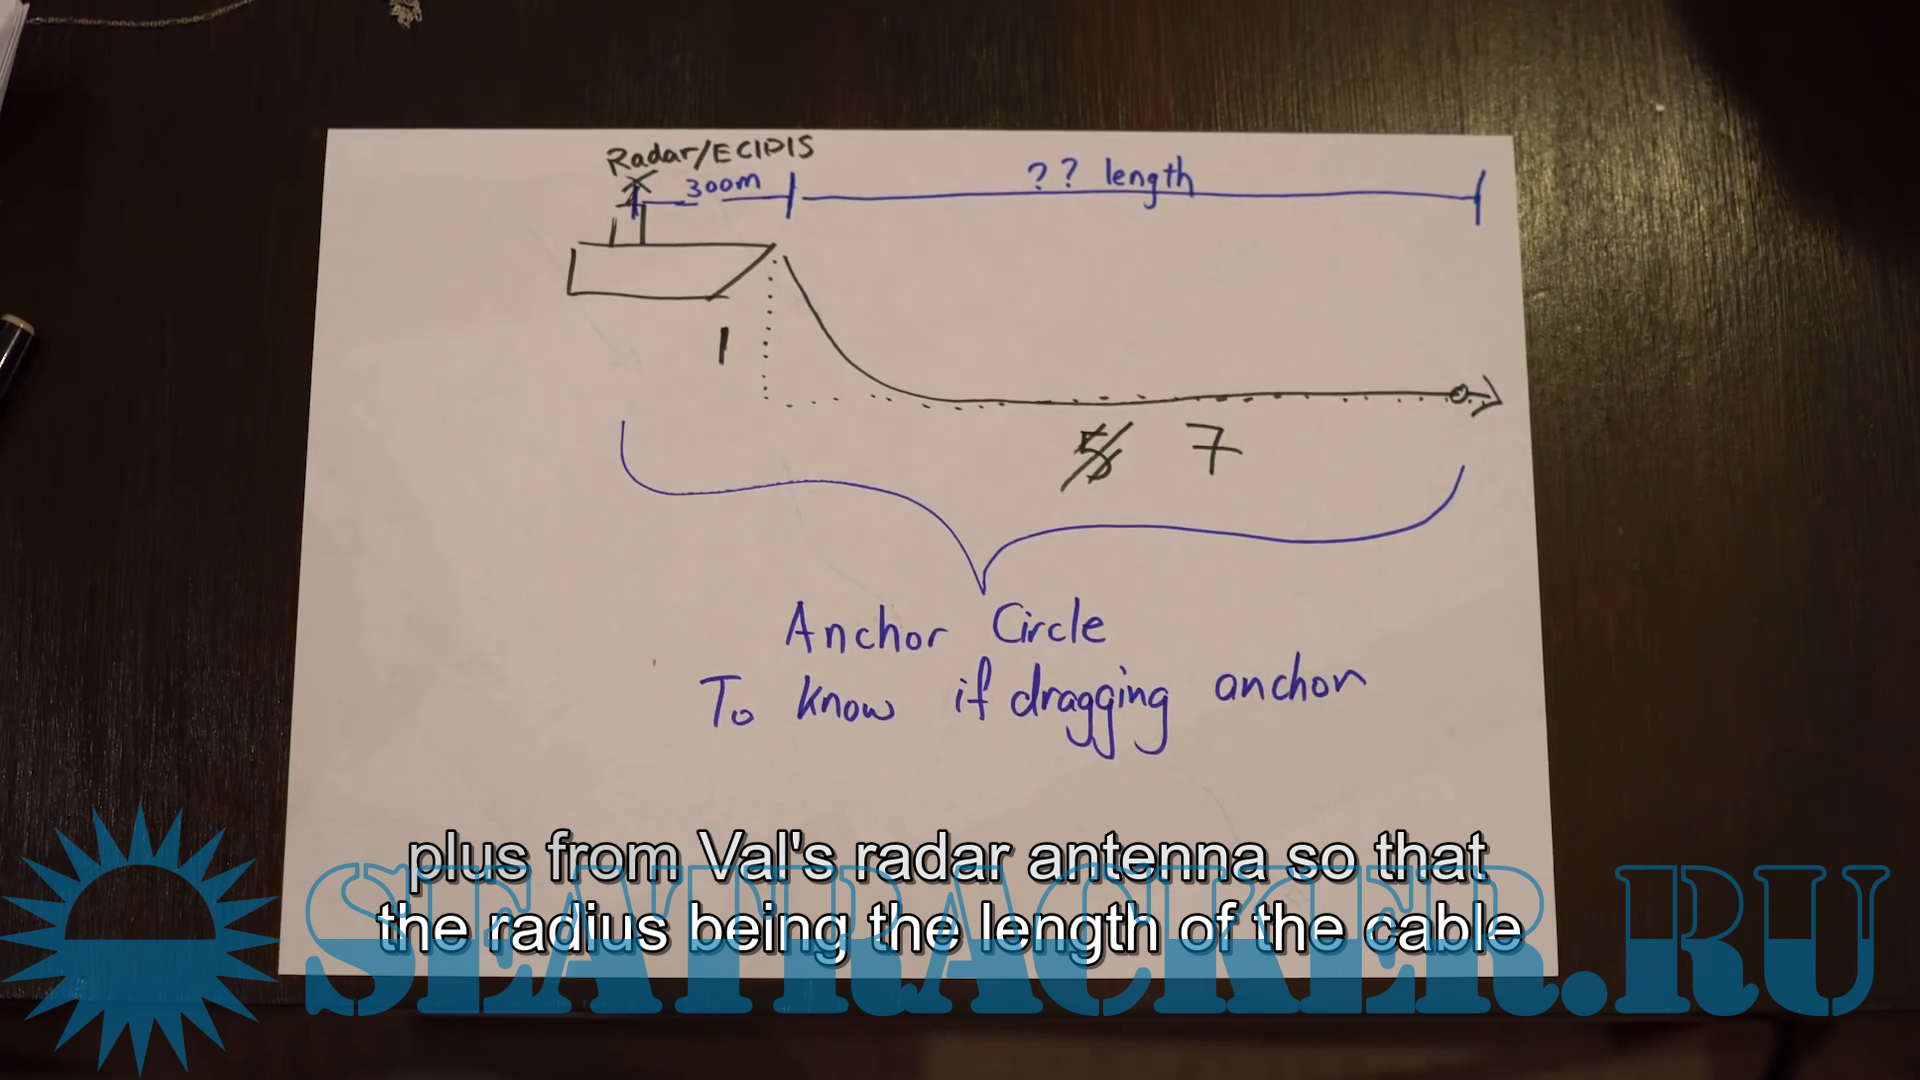 Radar/ECIDIS
300m
?? length
1
5 7
Anchor Circle
To know if dragging anchor
plus from Val's radar antenna so that
the radius being the length of the cable
SEATRACKER.RU